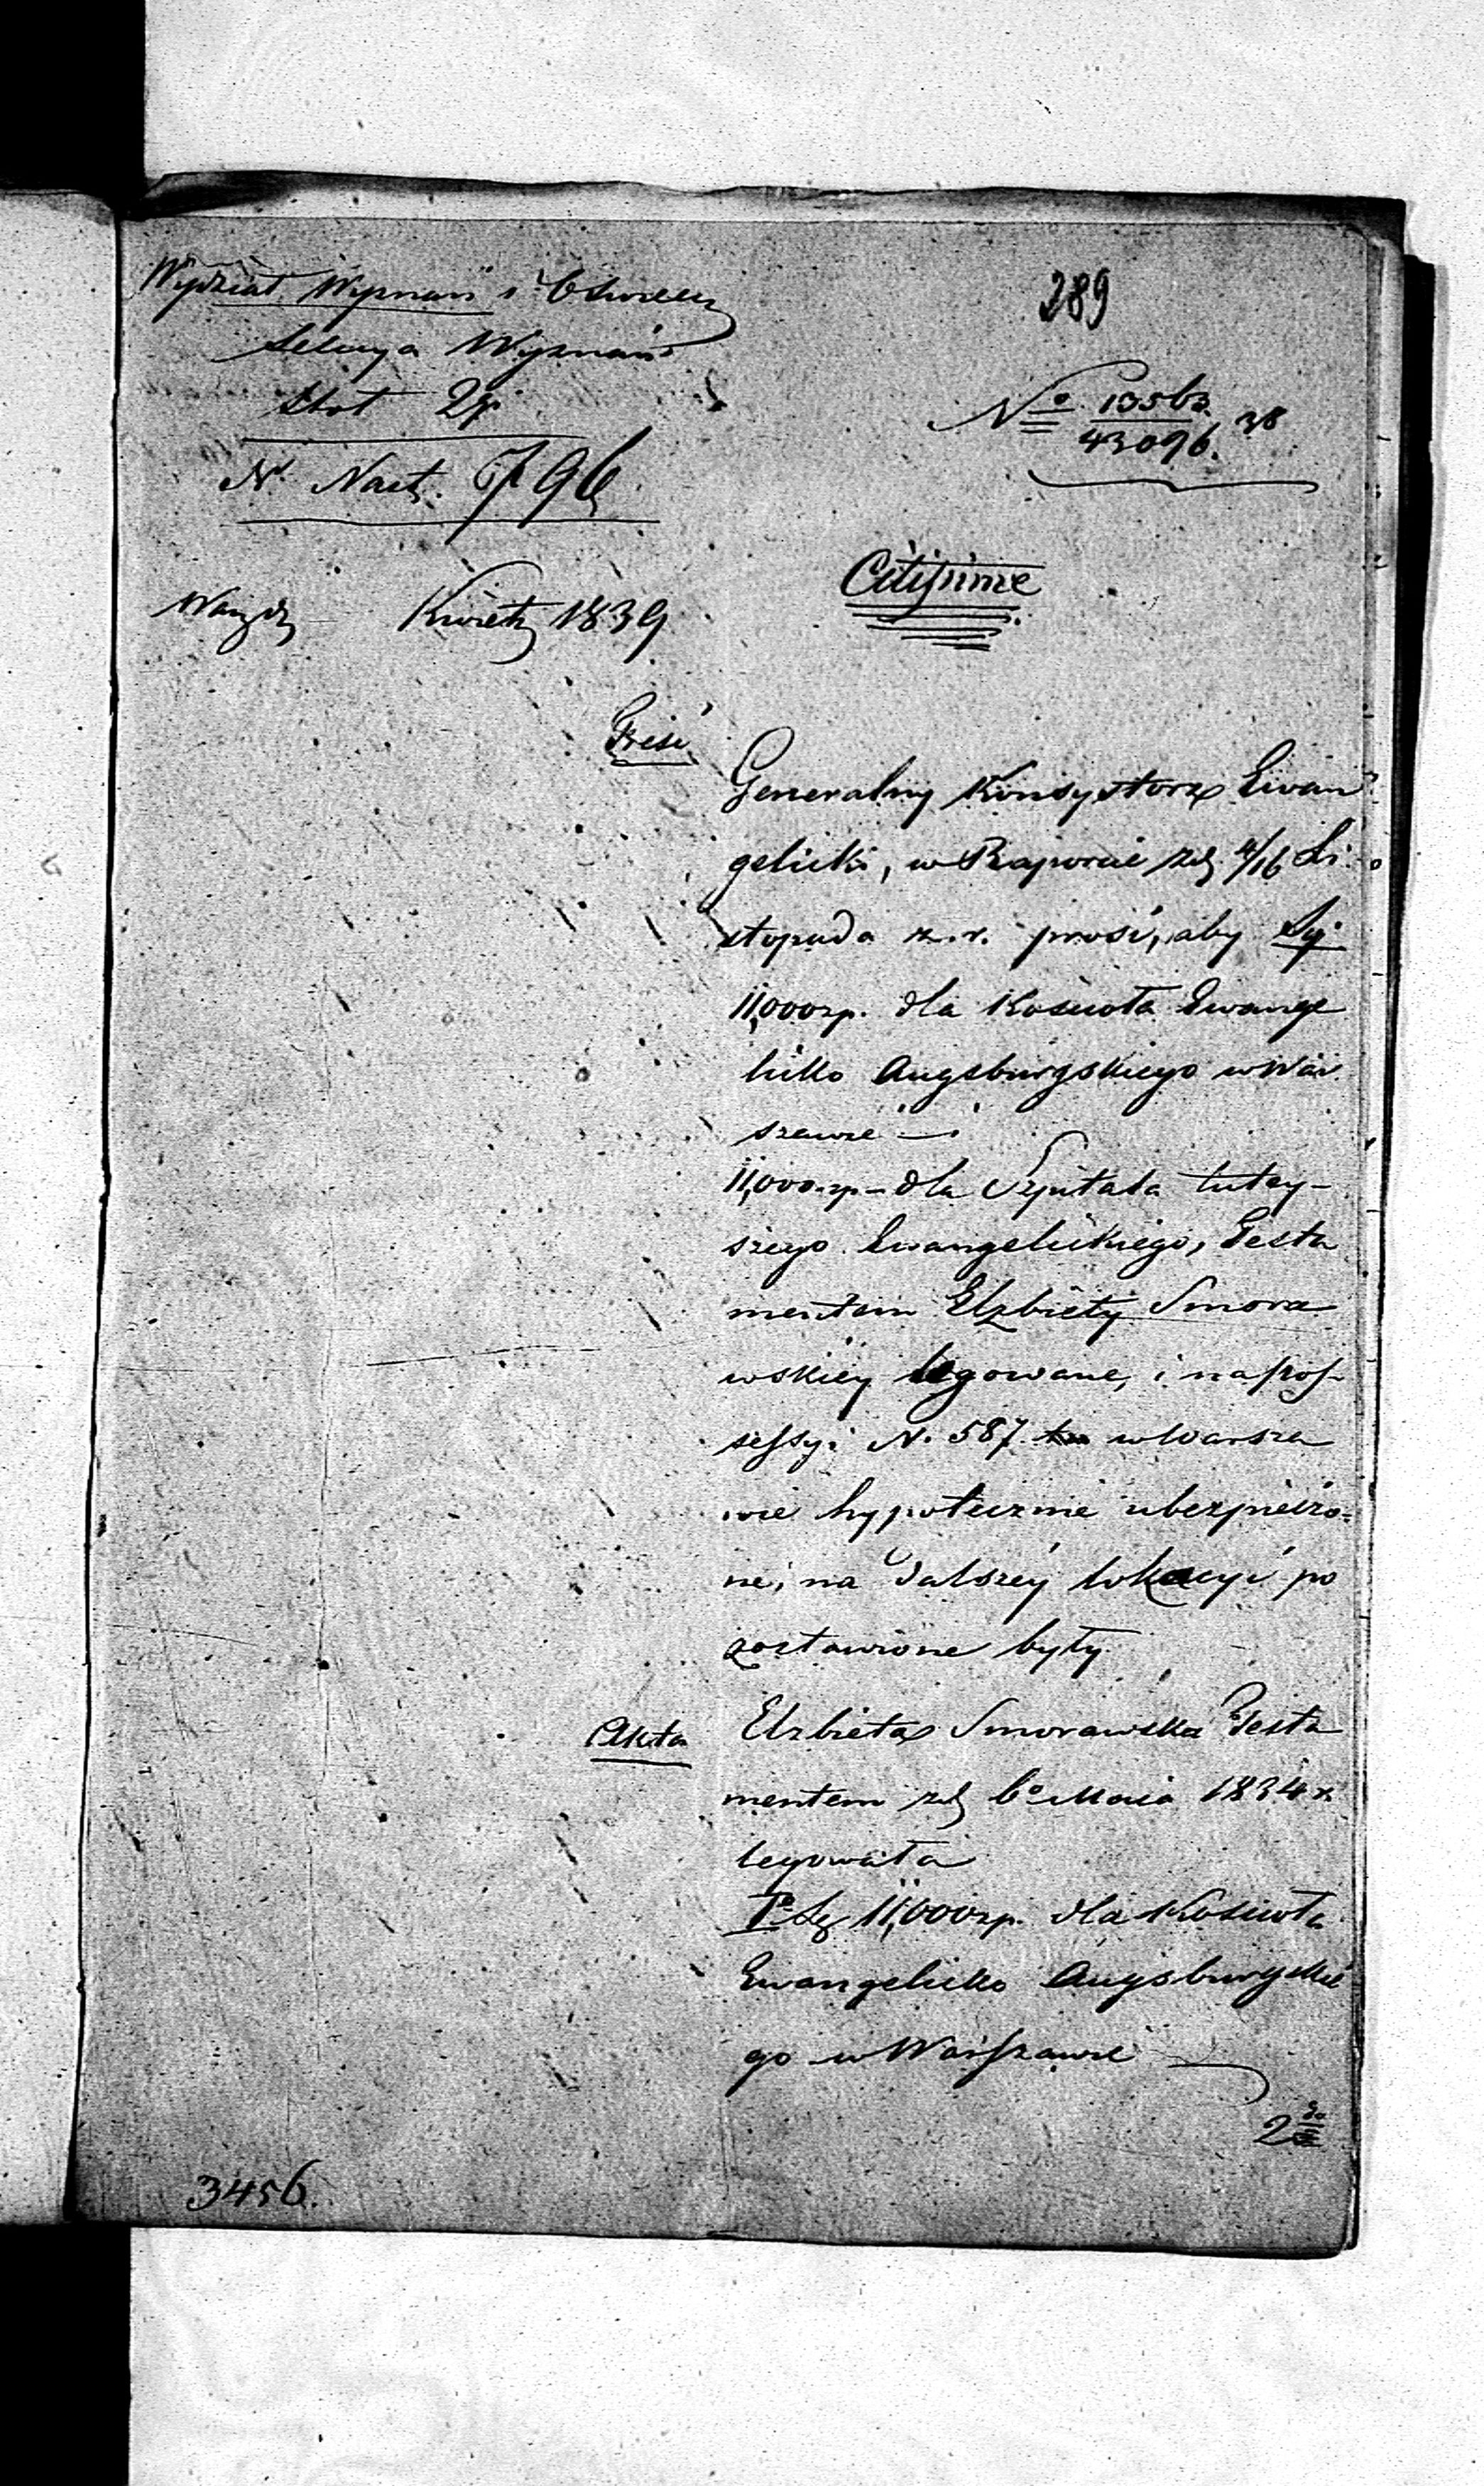 289
Wydział Wyznań i Oświece
Sekcya Wyznań
Stół 2gi
N. Nast. 796
No 13563. 38
43096.
Citissime
Kwietn 1839
Treść
Generalny Konsystorz Ewan
gelicki, w Raporcie z d. 4/16 Li
stopada z. r. prosi, aby Sy
11,000 zp. dla Kościoła Ewange
licko Augsburgskiego w War
szawie —
11,000 zp – dla Szpitala tutey-
szego Ewangelickiego, Testa
mentem Elżbiety Smora
wskiey legowane, i na pos-
sessyi N. 587 w Warsza
wie hypotecznie ubezpieczo=
ne, na dalszey lokacyi po
zostawione były.
Akta
Elżbieta Smorawska Testa
mentem z d. 6o Maia 1834 r
legowała
1o Sę 11,000 zp. dla Kościoła
Ewangelicko Augsburgskie
go w Warszawie —
2do
3456.